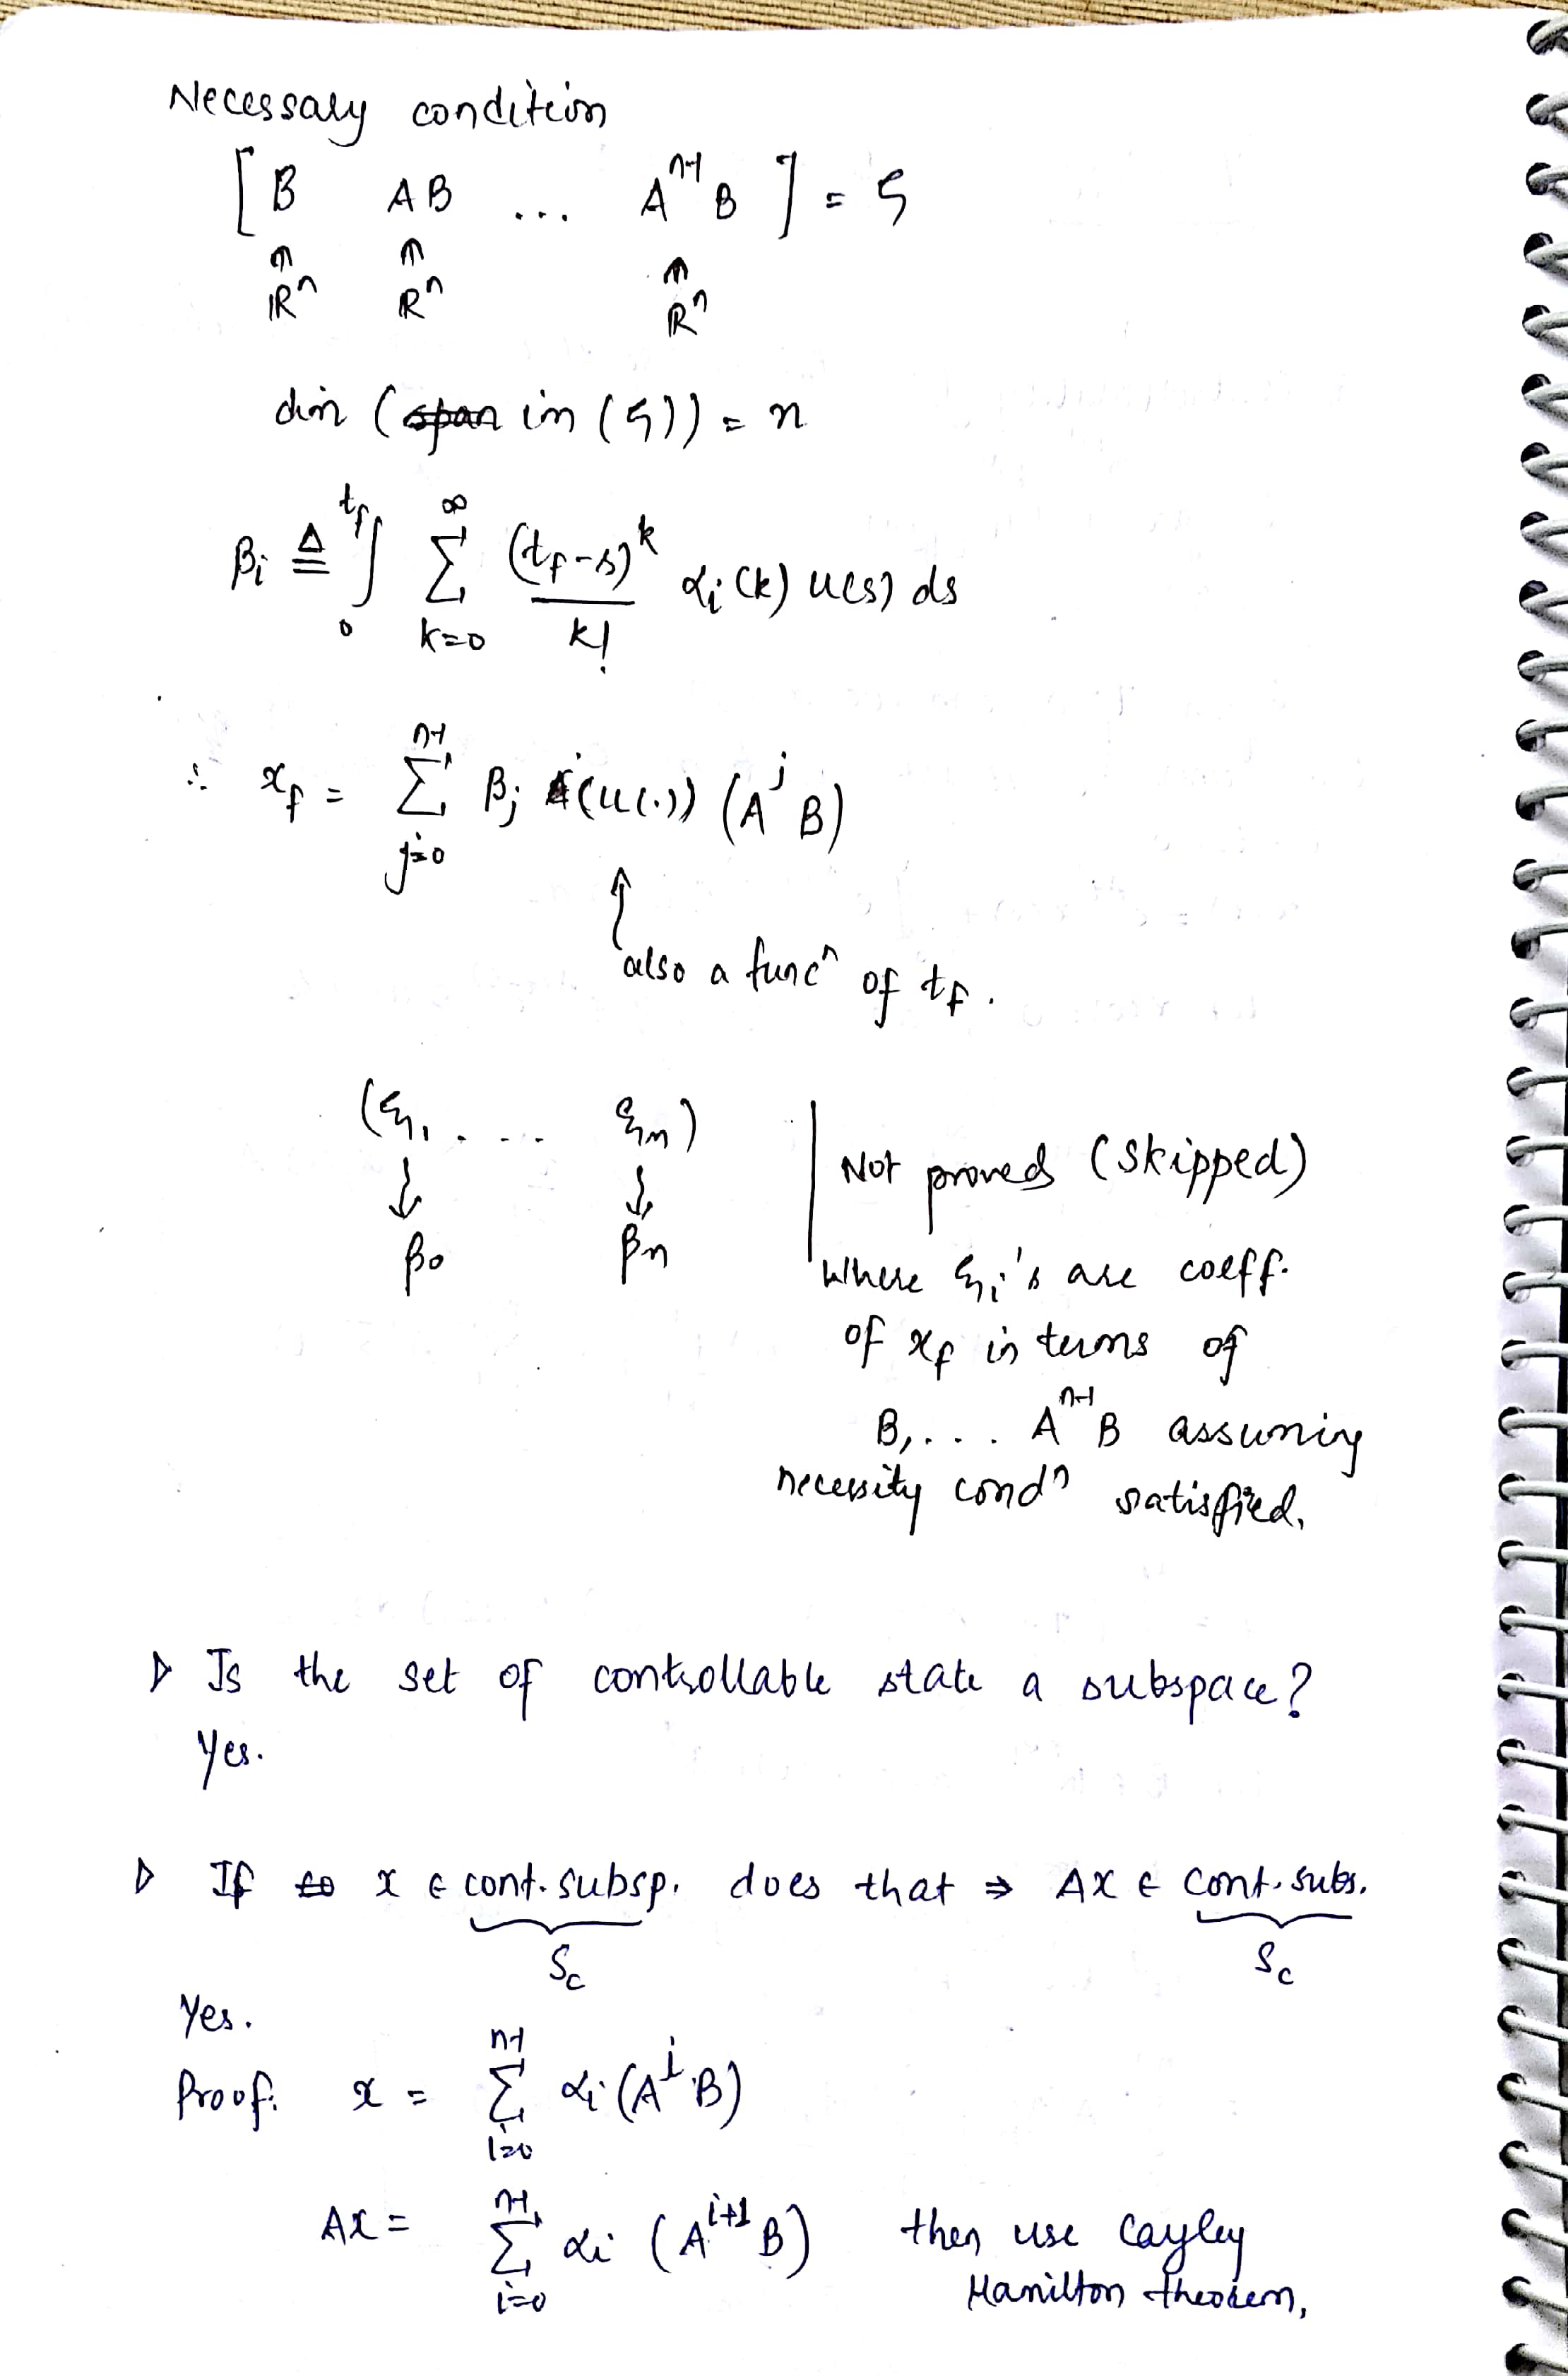 Necessary condition
[ B AB ... Aⁿ⁻¹B ] = G
ℝⁿ ℝⁿ ℝⁿ
dim (span im (G)) = n
βᵢ ≜ ∫₀^{t_f} Σ_{k=0}^{∞} (t_f-s)^k / k! αᵢ(k) u(s) ds
∴ x_f = Σ_{j=0}^{n-1} βⱼ (u(.)) (A^j B)
↑
also a funcⁿ of t_f.
(ξ₁ . ... ξₙ)
↓ ↓
β₀ βₙ
Not proved (skipped)
where ξᵢ's are coeff.
of x_f in terms of
B, ... Aⁿ⁻¹B assuming
necessity condⁿ satisfied.
▷ Is the set of controllable state a subspace?
Yes.
▷ If x ∈ cont. subsp. does that ⇒ Ax ∈ cont. subs.
S_c S_c
Yes.
Proof: x = Σ_{i=0}^{n-1} αᵢ (A^i B)
Ax = Σ_{i=0}^{n-1} αᵢ (A^{i+1} B) then use Cayley
Hamilton theorem,